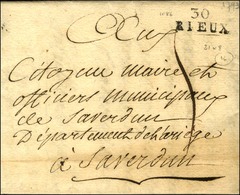 30
RIEUX
Aux
Citoyens maire et
officiers municipaux
de Saverdun
Département de l'ariège
à Saverdun